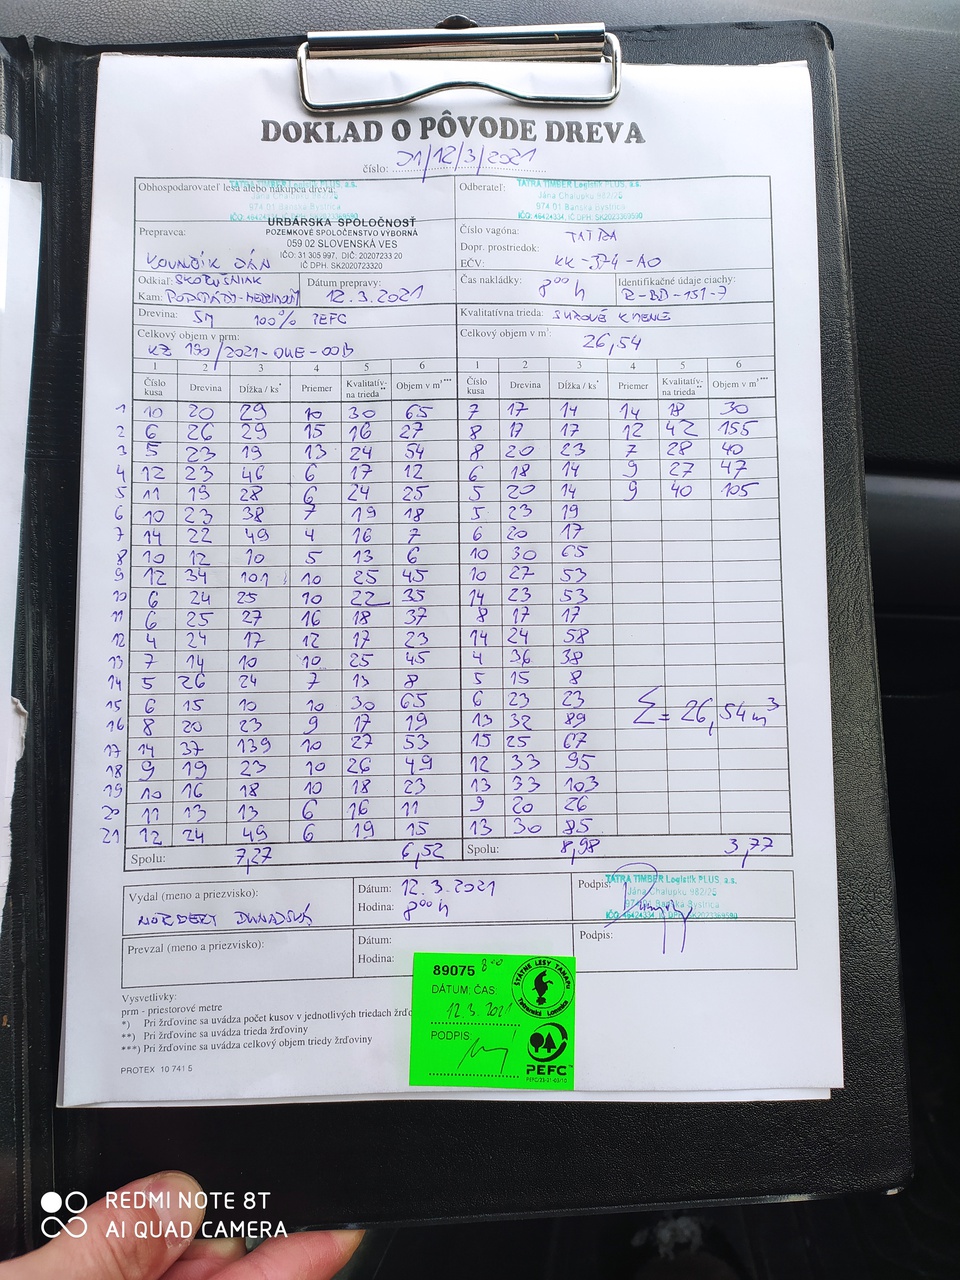 DOKLAD O PÔVODE DREVA
číslo: 01/12/3/2021
Obhospodarovateľ lesa alebo nákupca dreva:
TATRA TIMBER Logistik PLUS, a.s.
Jána Chalupku 982/25
974 01 Banská Bystrica
IČO: 46424334, IČ DPH: SK2023369590
URBÁRSKA SPOLOČNOSŤ
POZEMKOVÉ SPOLOČENSTVO VÝBORNÁ
059 02 SLOVENSKÁ VES
IČO: 31 305 997, DIČ: 20207233 20
IČ DPH: SK2020723320
Prepravca:
Odberateľ:
TATRA TIMBER Logistik PLUS, a.s.
Jána Chalupku 982/25
974 01 Banská Bystrica
IČO: 46424334, IČ DPH: SK2023369590
Číslo vagóna:
Dopr. prostriedok: TATRA
EČV: KK-374-AO
Odkiaľ: SKORUŠNIAK
Kam:
Dátum prepravy: 12.3.2021
Čas nakládky: 8⁰⁰ h
Identifikačné údaje ciachy: R-BB-151-7
Drevina: SM 100% PEFC
Kvalitatívna trieda: SUROVÉ KMENE
Celkový objem v prm:
KZ 130/2021-OUE-00B
Celkový objem v m³: 26,54
1 2 3 4 5 6 1 2 3 4 5 6
Číslo kusa Drevina Dĺžka / ks* Priemer Kvalitatív- na trieda** Objem v m³*** Číslo kusa Drevina Dĺžka / ks* Priemer Kvalitatív- na trieda** Objem v m³***
1 10 20 29 10 30 65 7 17 14 14 18 30
2 6 26 29 15 16 27 8 17 17 12 42 155
3 5 23 19 13 24 54 8 20 23 7 28 40
4 12 23 46 6 17 12 6 18 14 9 27 47
5 11 19 28 6 24 25 5 20 14 9 40 105
6 10 23 38 7 19 18 5 23 19
7 14 22 49 4 16 7 6 20 17
8 10 12 10 5 13 6 10 30 65
9 12 34 101 10 25 45 10 27 53
10 6 24 25 10 22 35 14 23 53
11 6 25 27 16 18 37 8 17 17
12 4 24 17 12 17 23 14 24 58
13 7 14 10 10 25 45 4 36 38
14 5 26 24 7 13 8 5 15 8
15 6 15 10 10 30 65 6 23 23
16 8 20 23 9 17 19 13 32 89
Σ = 26,54 m³
17 14 37 139 10 27 53 15 25 67
18 9 19 23 10 26 49 12 33 95
19 10 16 18 10 18 23 13 33 103
20 11 13 13 6 16 11 9 20 26
21 12 24 49 6 19 15 13 30 85
Spolu: 7,27 6,52 Spolu: 8,98 3,77
Vydal (meno a priezvisko):
Dátum: 12.3.2021
Hodina: 8⁰⁰ h
Podpis:
TATRA TIMBER Logistik PLUS, a.s.
Jána Chalupku 982/25
974 01 Banská Bystrica
IČO: 46424334, IČ DPH: SK2023369590
Prevzal (meno a priezvisko):
Dátum:
Hodina:
Podpis:
Vysvetlivky:
prm - priestorové metre
*) Pri žrďovine sa uvádza počet kusov v jednotlivých triedach žrďo
**) Pri žrďovine sa uvádza trieda žrďoviny
***) Pri žrďovine sa uvádza celkový objem triedy žrďoviny
PROTEX 10 741 5
89075 8⁰⁰
DÁTUM, ČAS:
12.3.2021
PODPIS:
ŠTÁTNE LESY TANAPu
Tatranská Lomnica
PEFC
PEFC/23-21-03/10
REDMI NOTE 8T
AI QUAD CAMERA